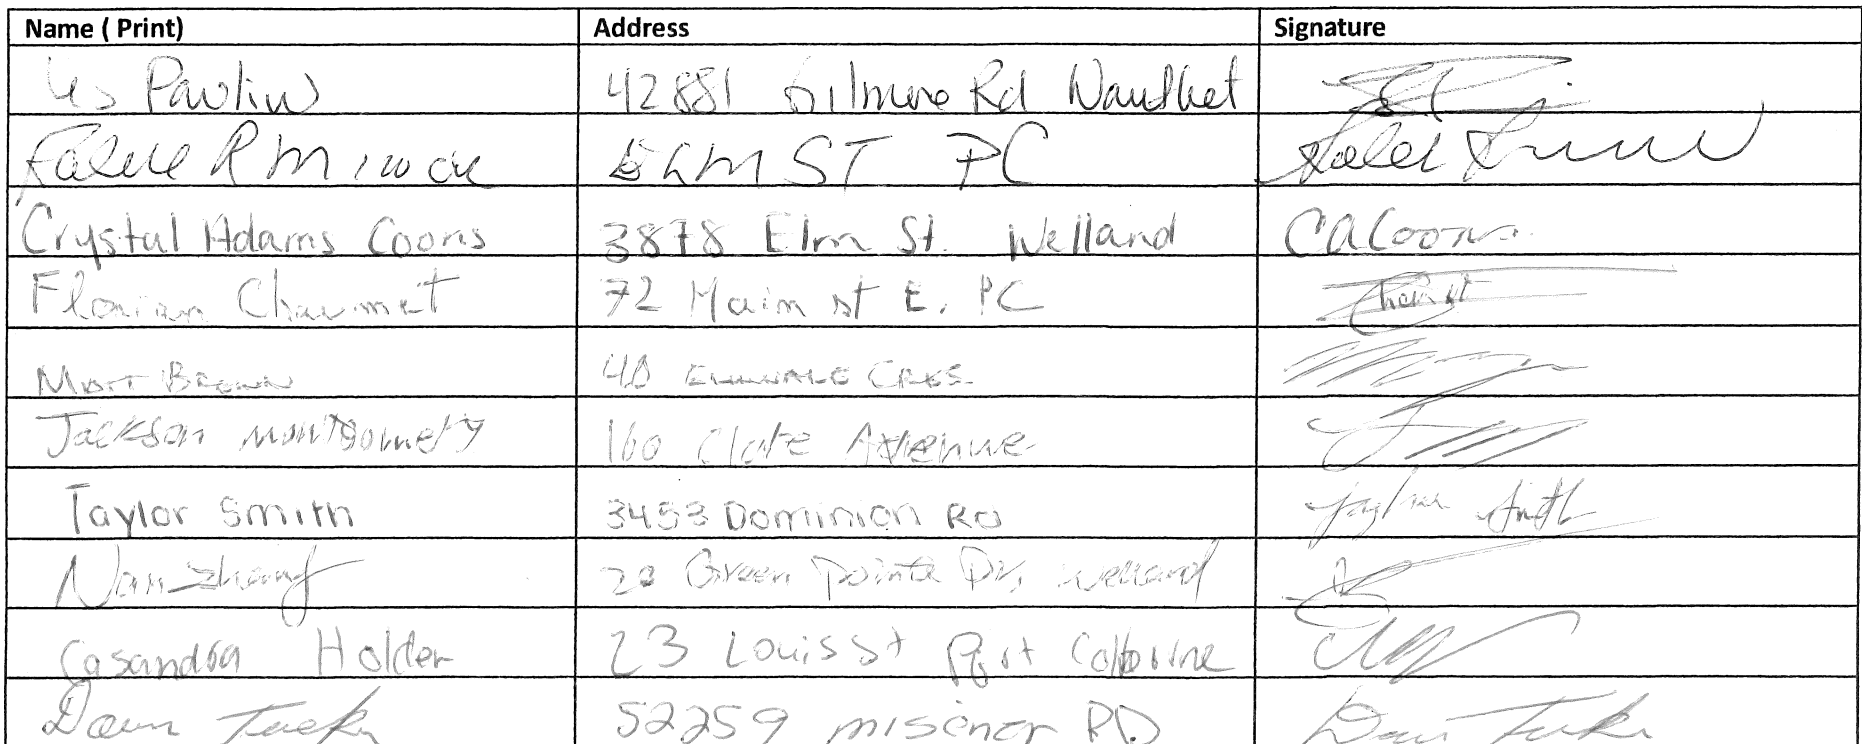 Name ( Print) Address Signature
Les Pavlin 42881 Gilmore Rd Wainfleet
ELM ST PC
Crystal Adams Coons 3878 Elm St. Welland CACoons
Florian Chaumet 72 Main st E. PC
Matt Brown 40 Cres.
Jackson Montgomery 160 Clare Avenue
Taylor Smith 3453 Dominion RD Taylor Smith
Nan Zhang 20 Green Pointe Dr, Welland
Casandra Holder 23 Louis st Port Colborne
Dawn Tuck 52259 misener RD.